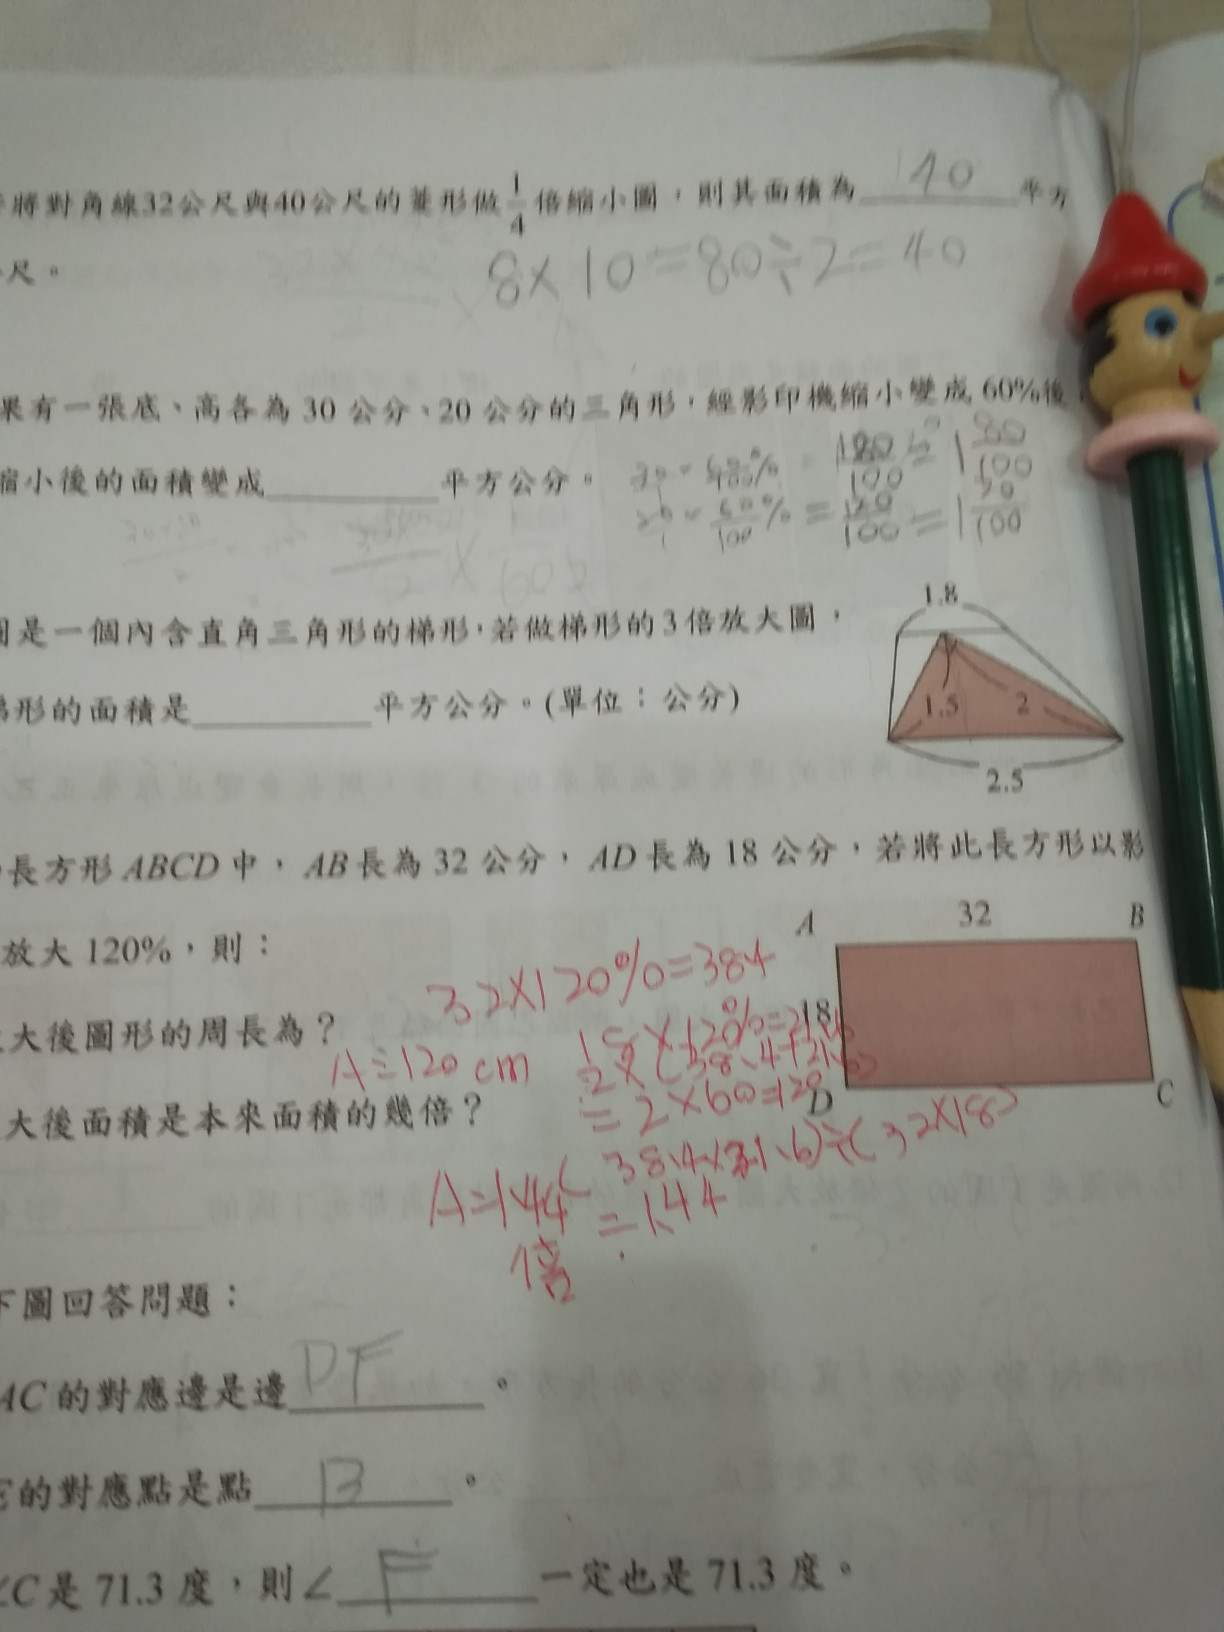 將對角線32公尺與40公尺的菱形做 1/4 倍縮小圖，則其面積為 40 平方
尺。
8×10=80÷2=40
果有一張底、高各為 30 公分、20 公分的三角形，經影印機縮小變成 60%後，
縮小後的面積變成______平方公分。
是一個內含直角三角形的梯形，若做梯形的3倍放大圖，
形的面積是______平方公分。(單位：公分)
1.8
1.5 2
2.5
長方形ABCD中，AB長為 32 公分，AD長為 18 公分，若將此長方形以影
放大 120%，則：
A 32 B
18
D C
32×120%=384
大後圖形的周長為？
18×120%=21.6
A=120cm
2×(38.4+21.6)
=2×60=120
大後面積是本來面積的幾倍？
(38.4×21.6)÷(32×18)
=1.44
A=1.44
倍
下圖回答問題：
AC的對應邊是邊 DF 。
E的對應點是點 B 。
∠C是 71.3 度，則∠ F 一定也是 71.3 度。